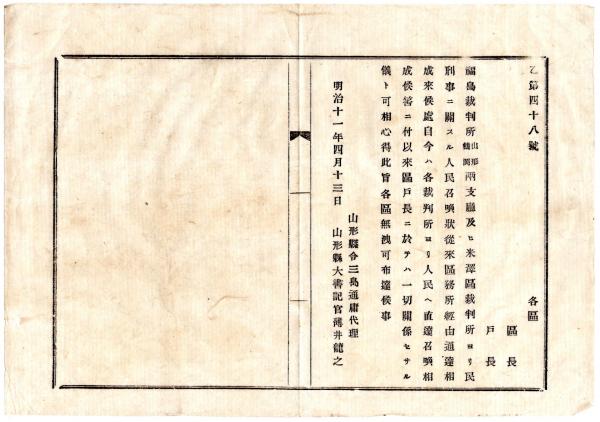 乙第四十八號
各區
區長
戸長
福島裁判所山形鶴岡兩支廳及ヒ米澤區裁判所ヨリ民
刑事ニ關スル人民召喚狀從來區務所經由通達相
成來候處自今ハ各裁判所ヨリ人民ヘ直達召喚相
成候筈ニ付以來區戸長ニ於テハ一切關係セサル
儀ト可相心得此旨各區無洩可布達候事
明治十一年四月十三日
山形縣令三島通庸代理
山形縣大書記官薄井龍之